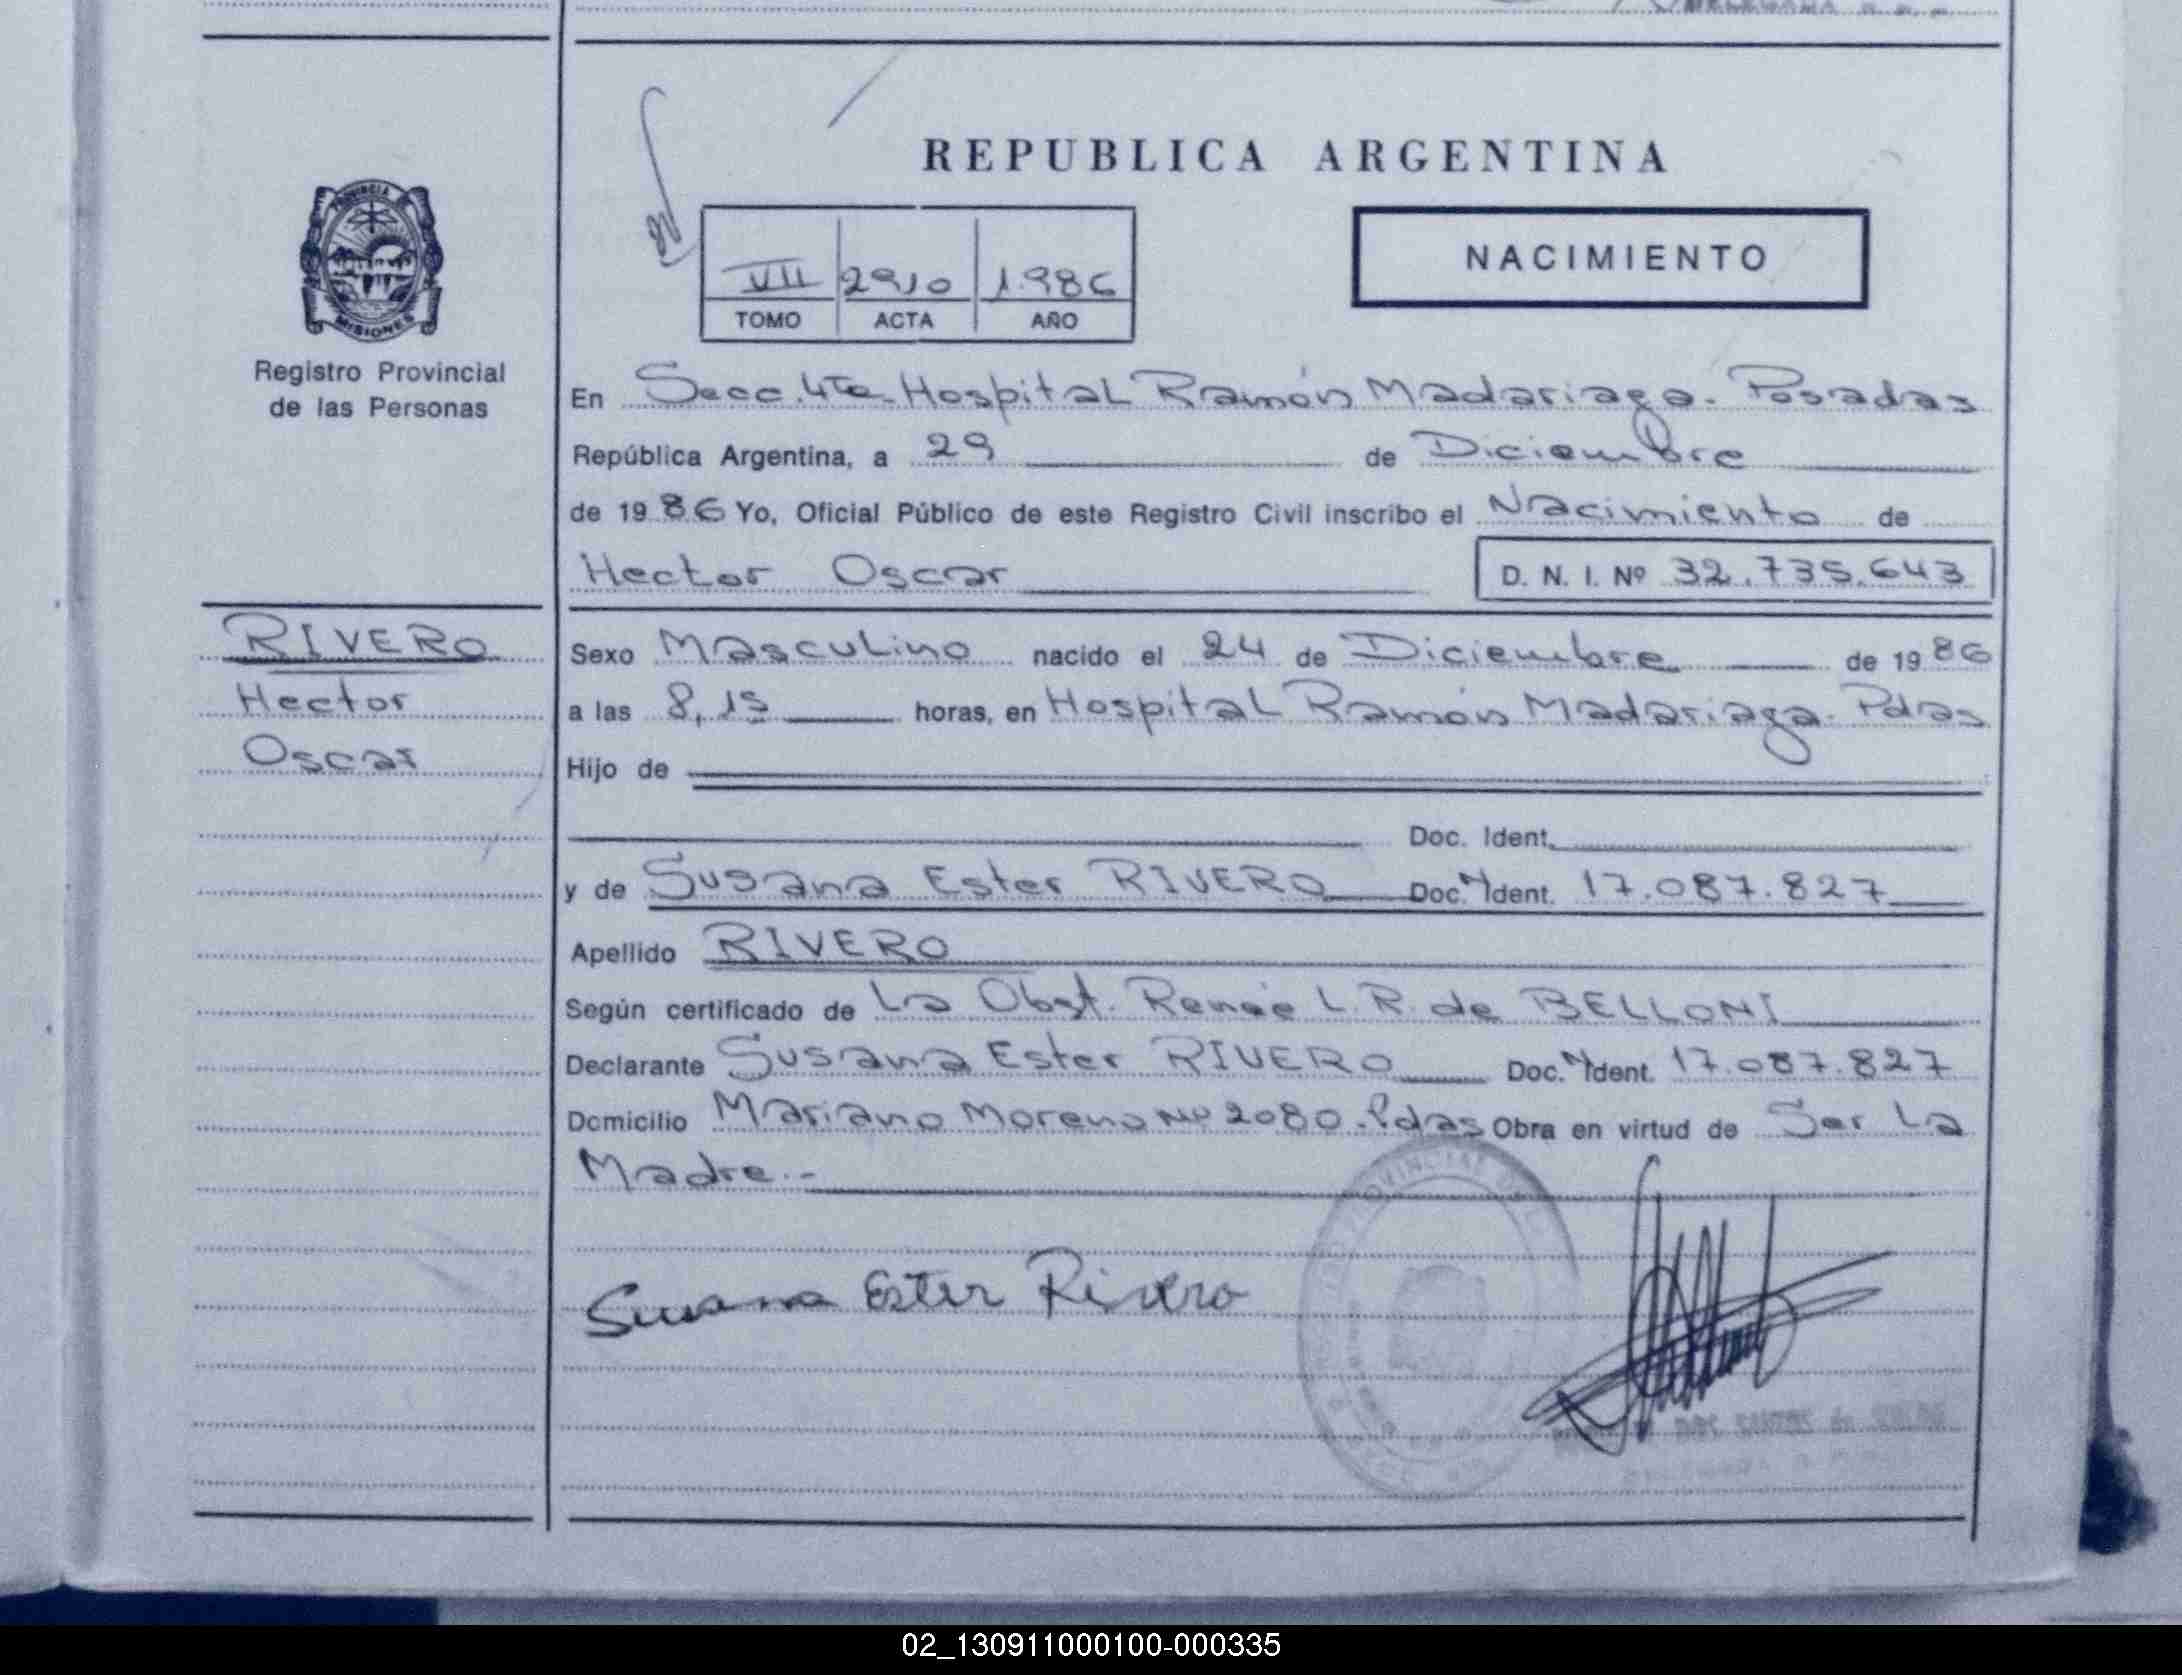 REPUBLICA ARGENTINA
PROVINCIA DE
MISIONES
VII 2910 1.986
TOMO ACTA AÑO
NACIMIENTO
Registro Provincial
de las Personas
En Secc. 4ta. Hospital Ramón Madariaga. Posadas
República Argentina, a 29 de Diciembre
de 1986 Yo, Oficial Público de este Registro Civil inscribo el Nacimiento de
Hector Oscar D. N. I. Nº 32.735.643
RIVERO
Hector
Oscar
Sexo Masculino nacido el 24 de Diciembre de 1986
a las 8,15 horas, en Hospital Ramón Madariaga. Pdas
Hijo de
Doc. Ident.
y de Susana Ester RIVERO Doc. Ident. 17.087.827
Apellido RIVERO
Según certificado de La Obst. Renée L. R. de BELLONI
Declarante Susana Ester RIVERO Doc. Ident. 17.087.827
Domicilio Mariano Moreno Nº 2080. Pdas Obra en virtud de Ser La
Madre.-
Susana Ester Rivero
02_130911000100-000335